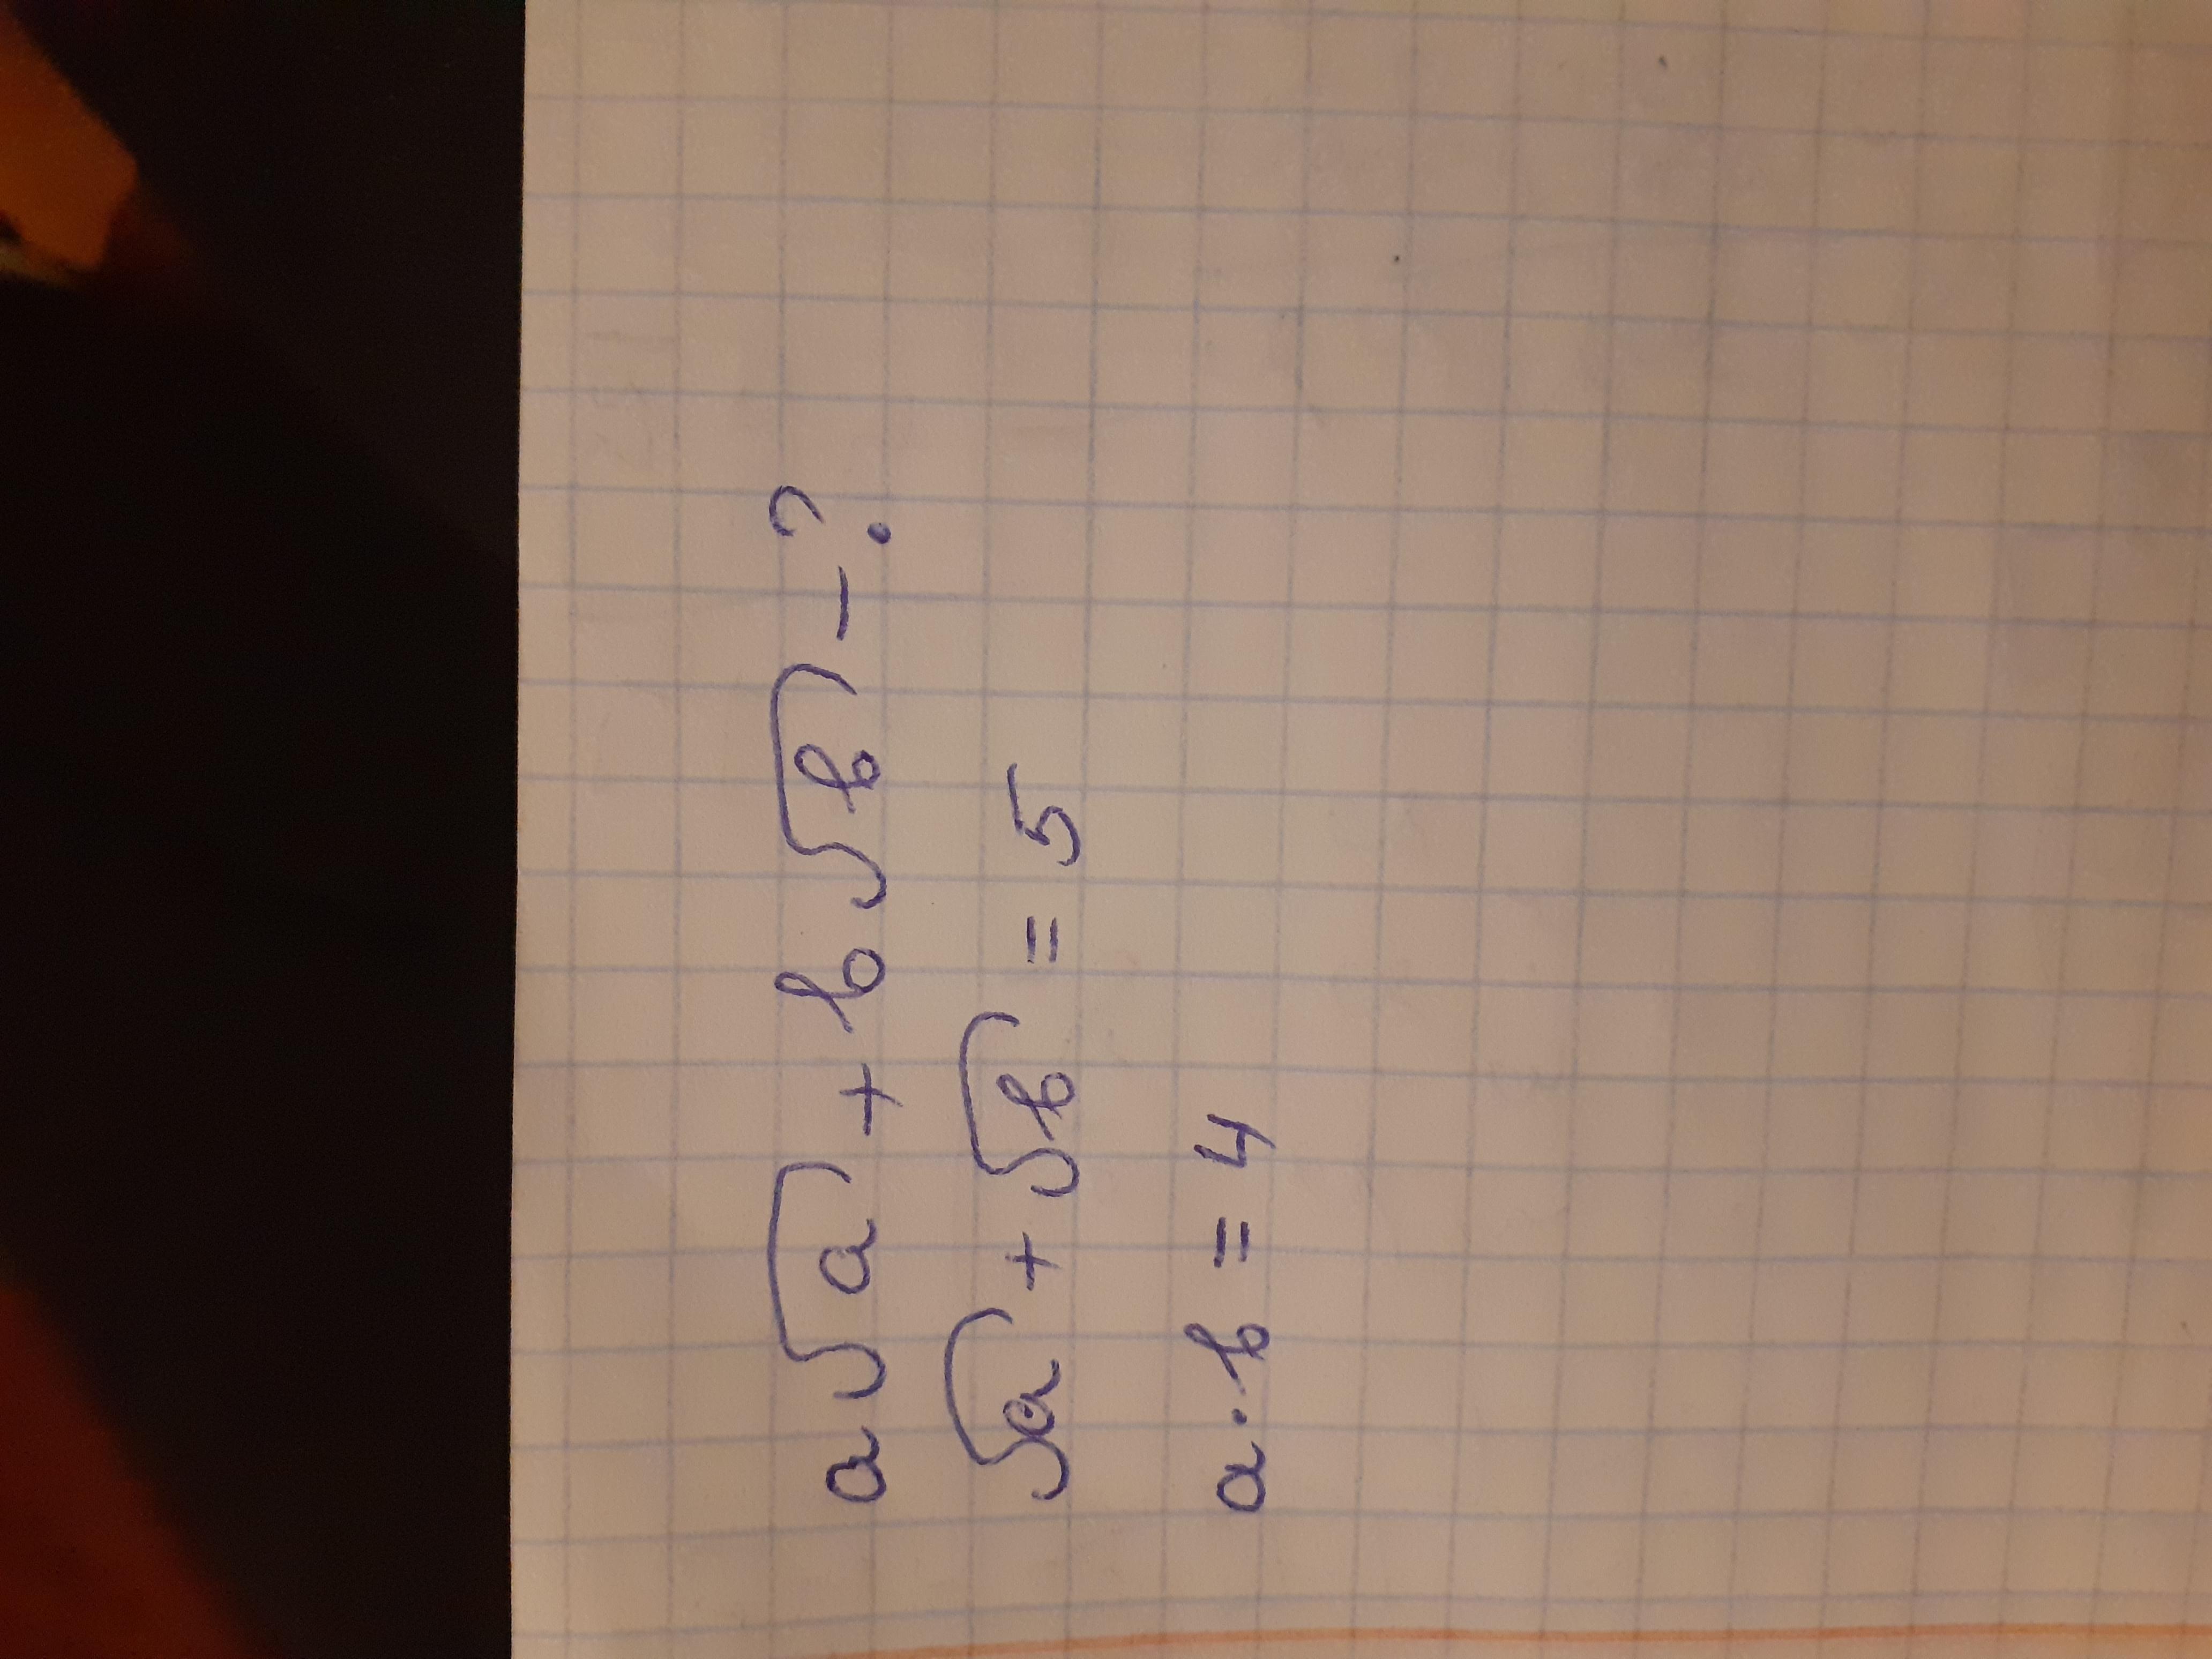 a√a + b√b - ?
√a + √b = 5
a·b = 4